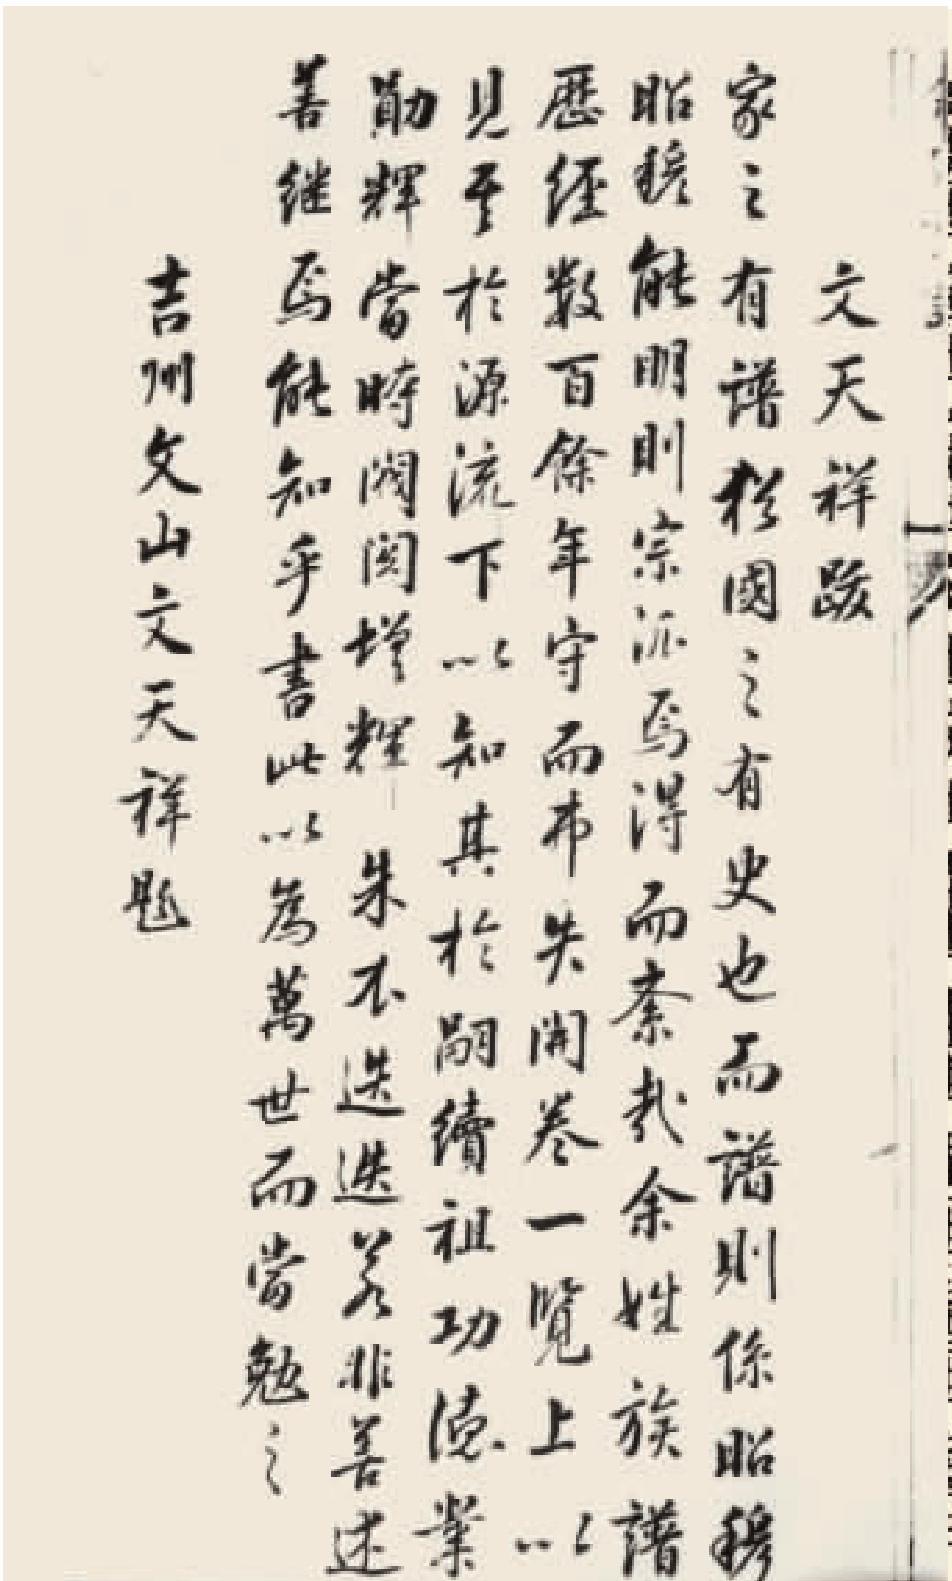 文天祥跋
家之有譜猶國之有史也而譜則係昭穆
昭穆能明則宗派焉得而紊哉余姓族譜
歷經數百餘年守而弗失開卷一覽上以
見其於源流下以知其於嗣續祖功德業
勛輝當時閥閱增輝朱衣迭迭若非善述
善继焉能知乎書此以為萬世而當勉之
吉州文山文天祥題